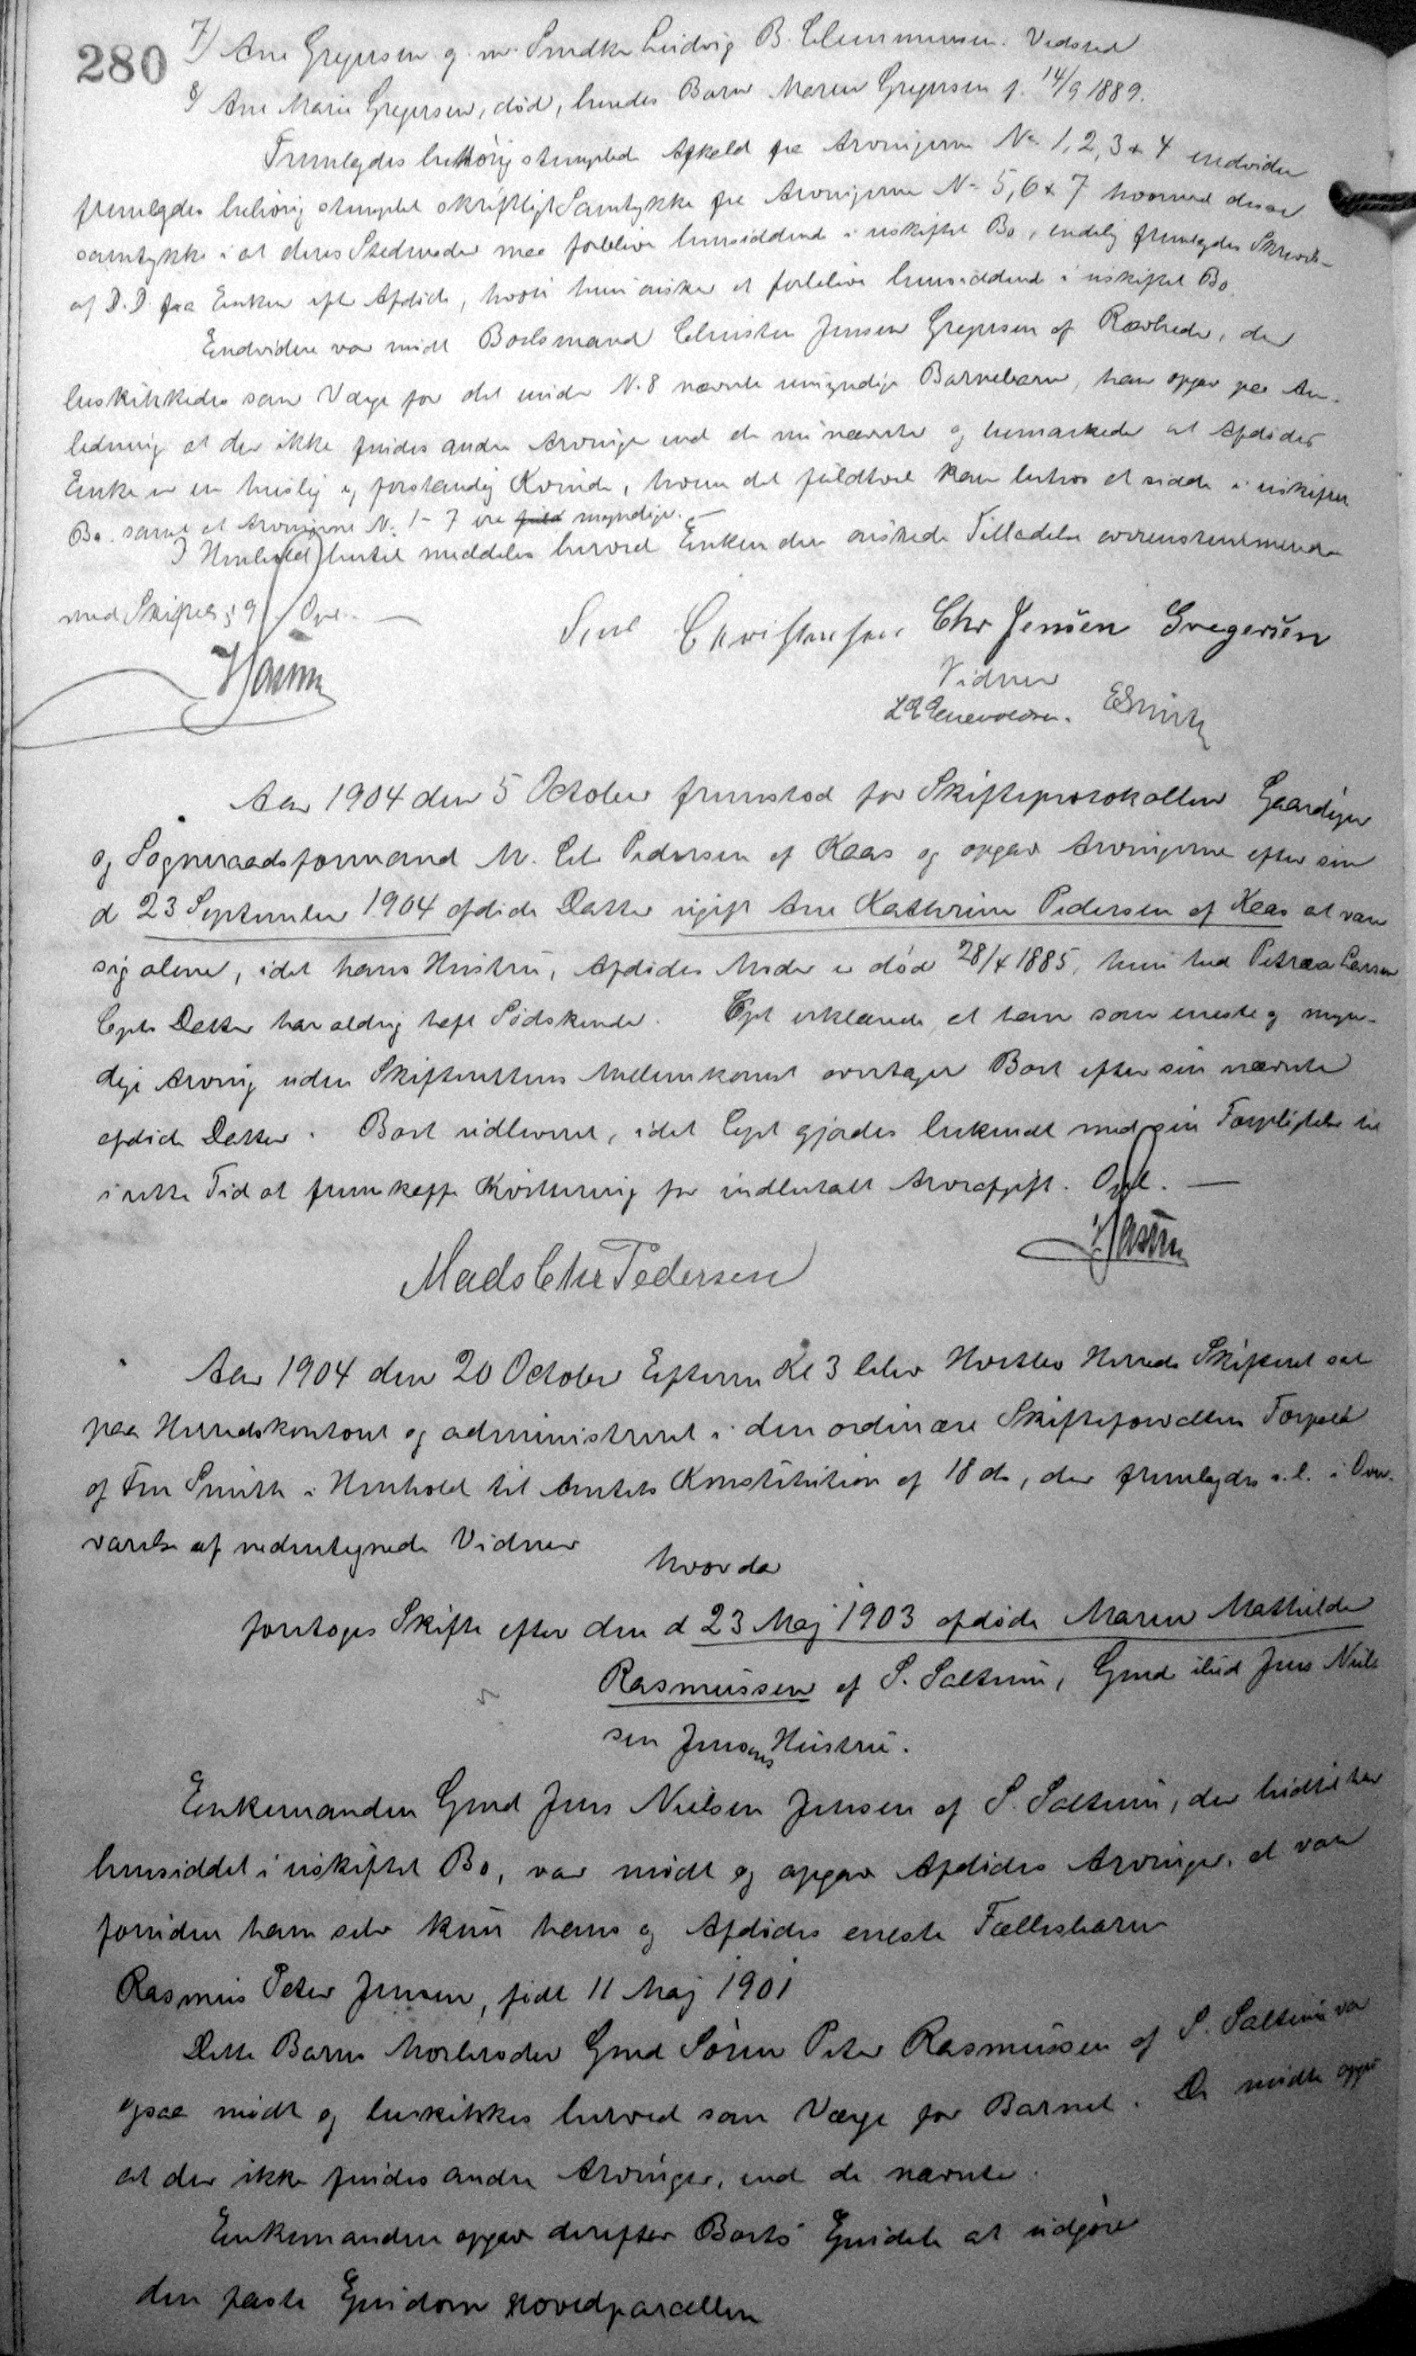 280
7) Ane Gregersen g. m. Smedken Ludvig B. Clemmensen. Vedsted
8) Ane Marie Gregersen, død, hendes Barn Maren Gregersen f. 14/9 1889.
Fremlagdes behørig stemplede Afkald fra Arvingerne No 1, 2, 3 & 4 endvidere
fremlagdes behørig stemplet skriftligt Samtykke fra Arvingerne No 5, 6 & 7 hvorved disse
samtykke i at deres Stedmoder maa forblive hensiddende i uskiftet Bo, endelig fremlagdes Skrivelse
af D. D. fra Enken efter Afdøde, hvori hun ønsker at forblive hensiddende i uskiftet Bo.
Endvidere var mødt Boelsmand Christen Jensen Gregersen af Ravhede, der
beskikkedes som Værge for det under No 8 nævnte umyndige Barnebarn, han opgav paa An-
ledning at der ikke findes andre Arvinger end de nu nævnte og bemærkede at Afdødes
Enke er en huslig og forstandig Kvinde, hvem det fuldtvel kan betros at sidde i uskiftet
Bo samt at Arvingerne No. 1-7 ere fuld myndige. —
I Henhold hertil meddeles herved Enken den ønskede Tilladelse overensstemmende
med Skiftel. § 9 / Opl. —
Hasum
Sine Christensen Chr Jensen Gregersen
Vidner
L E Enevoldsen. ESmith
Aar 1904 den 5 October fremstod for Skifteprotokollen Gaardejer
og Sogneraadsformand M. Chr Pedersen af Kaas og opgav Arvingerne efter sin
d 23 September 1904 afdøde Datter ugift Ane Kathrine Pedersen af Kaas at være
sig alene, idet hans Hustru, Afdødes Moder er død 28/4 1885, hun hed Petrea Larsen
Cpts Datter har aldrig haft Sødskende. Cpt erklærede, at han som eneste og myn-
dige Arving uden Skifterettens Mellemkomst overtager Boet efter sin nævnte
afdøde Datter. Boet udleveret, idet Cpt gjordes bekendt med sin Forpligtelse til
i rette Tid at fremskaffe Kvittering for indbetalt Arveafgift. Opl. —
Hasum
Mads Chr Pedersen
Aar 1904 den 20 October Efterm Kl 3 blev Hvetbo Herreds Skifteret sat
paa Herredskontoret og administreret i den ordinære Skifteforvalters Forfald
af Fm Smith i Henhold til Amtets Konstitution af 18 ds, der fremlagdes i. l. i Over-
værelse af nedentegnede Vidner
hvorda
foretoges Skifte efter den d 23 Maj 1903 afdøde Maren Mathilde
Rasmussen af S. Saltum, Gmd ibid Jens Niel-
sen Jensens Hustru.
Enkemanden Gmd Jens Nielsen Jensen af S. Saltum, der hidtil har
hensiddet i uskiftet Bo, var mødt og opgav Afdødes Arvinger, at være
foruden ham selv kun hans og Afdødes eneste Fællesbarn
Rasmus Peter Jensen, født 11 Maj 1901
Dette Barns Morbroder Gmd Søren Peter Rasmussen af S. Saltum var
ogsaa mødt og beskikkes herved som Værge for Barnet. De mødte opgav
at der ikke findes andre Arvinger, end de nævnte.
Enkemanden opgav derefter Boets Ejendele at udgøre
den faste Ejendom Hovedparcellen